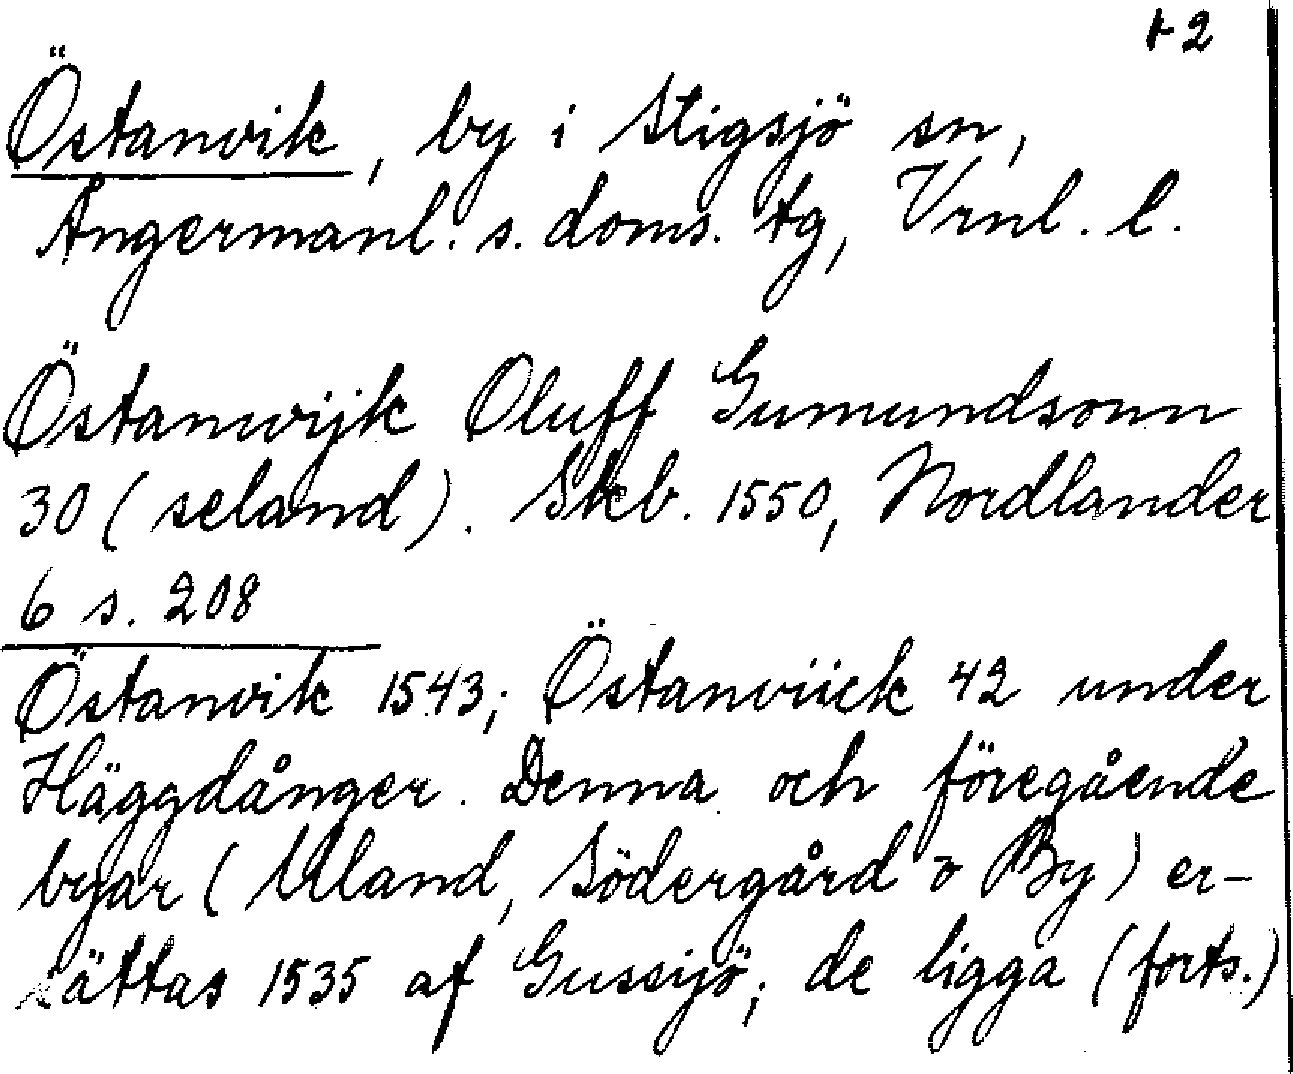 +2
Östanvik, by i Stigsjö sn,
Ångermanl. s. doms. tg, Vrnl. l.
Östanwijk Oluff Gumundsonn
30 (seland). Skb. 1550, Nordlander
6 s. 208
Östanvik 1543; Östanviick 42 under
Häggdånger. Denna och föregående
byar (Uland, Södergård o By) er-
sättas 1535 af Gussijö; de ligga (forts.)